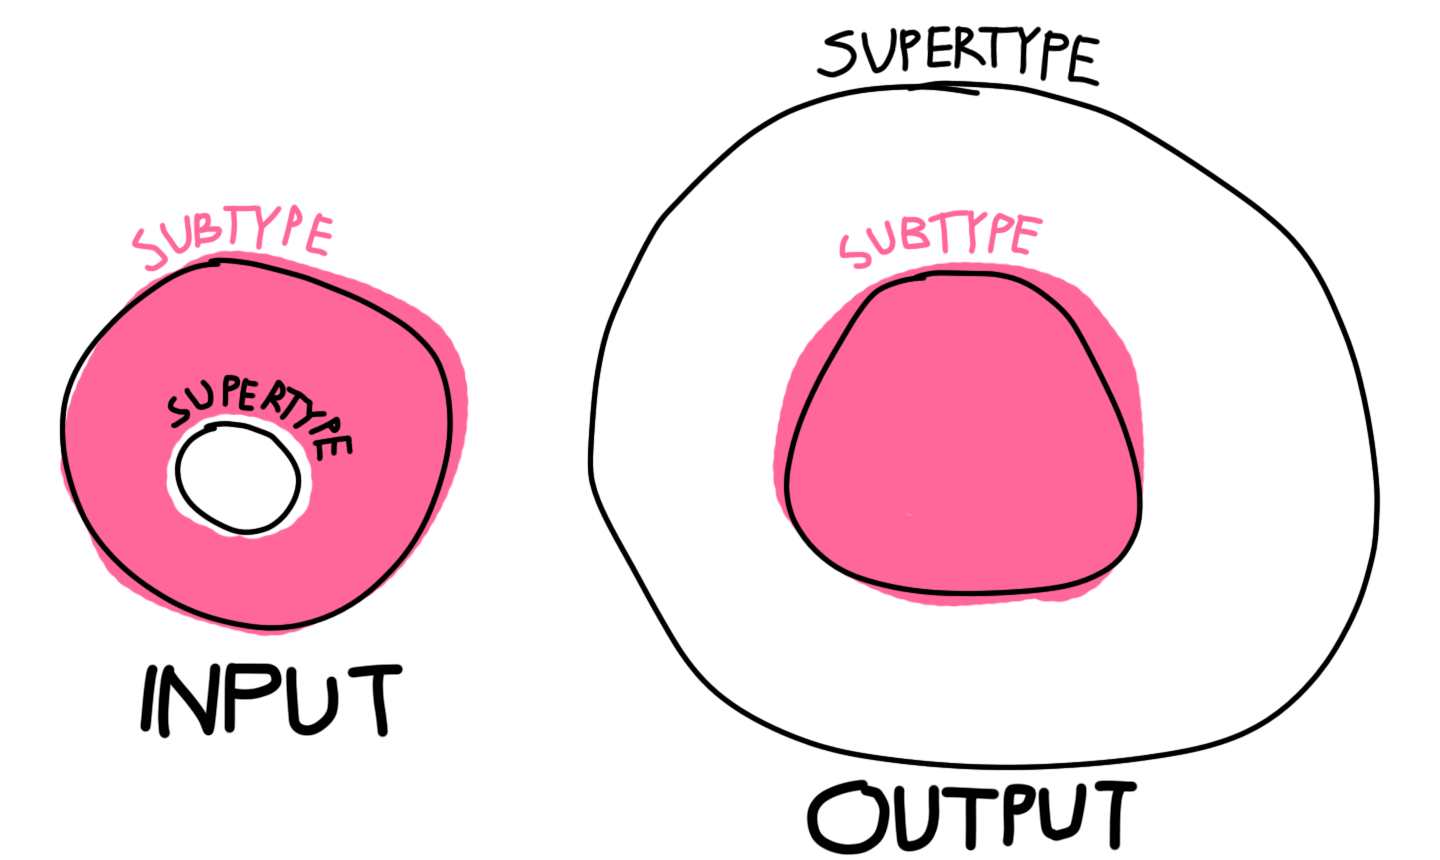 SUBTYPE
SUPERTYPE
INPUT
SUPERTYPE
SUBTYPE
OUTPUT